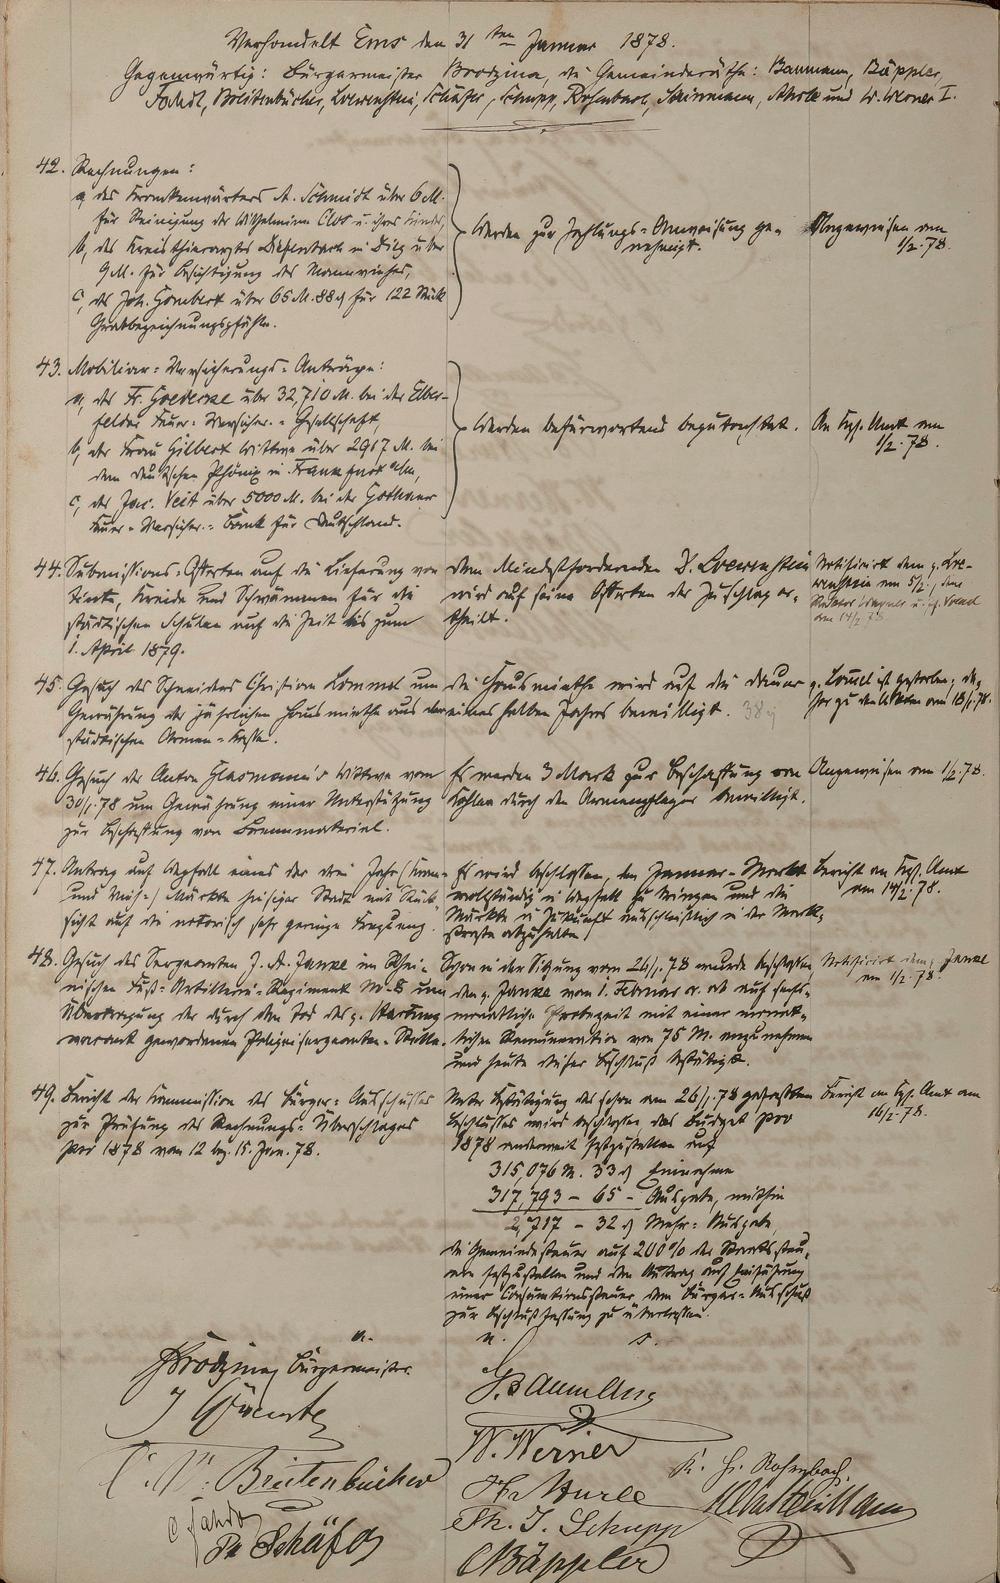 Verhandelt Ems den 31ten Januar 1878.
Gegenwärtig: Bürgermeister Brodzina, die Gemeinderäthe: Baumann, Bäppler,
Breitenbücher, Loewenstein, Schäfer, Schupp, Rosenbach, und W. Werner I.
42. Rechnungen:
a, des Krankenwärters A. Schmidt über 6 M.
für Reinigung der Wilhelmine Clos u. ihres Kindes,
b, des Kreisthierarztes Diefenbach in Diez über
9 M. für Besichtigung des
c, des Joh. Gombert über 65 M. 88 ₰ für 122 Stück
Grabbezeichnungspfähle.
Werden zur Zahlungs-Anweisung ge-
nehmigt.
Angewiesen am
1/2. 78.
43. Mobiliar-Versicherungs-Anträge:
a, des Fr. Goedecke über 32,710 M. bei der Elber-
felder Feuer-Versicher.-Gesellschaft,
b, der Frau Gilbert Wittwe über 2967 M. bei
dem deutschen Phönix in Frankfurt a/m,
c, des Jac. Veit über 5000 M. bei der Gothaer
Feuer-Versicher.-Bank für Deutschland.
Werden befürwortend begutachtet.
An Kgl. Amt am
1/2. 78.
44. Submissions-Offerten auf die Lieferung von
Tinte, Kreide und Schwämmen für die
städtischen Schulen auf die Zeit bis zum
1. April 1879.
Dem Mindestfordernden D. Loewenstein
wird auf seine Offerten der Zuschlag er-
theilt.
Notificirt dem p. Loe-
wenstein am 5/2, dem
am 14/2 78
45. Gesuch des Schneiders Christian Lommel um
Gewährung der jährlichen Hausmiethe aus der
städtischen Armen-Kasse.
Die Hausmiethe wird auf die Dauer
eines halben Jahres bewilligt.
p. Lommel ist gestorben, da-
her zu den Akten am 18/2. 78.
46. Gesuch der Anton Glasmann's Wittwe vom
30/1. 78 um Gewährung einer Unterstützung
zur Beschaffung von Brennmaterial.
Es werden 3 Mark zur Beschaffung von
Kohlen durch den Armenpfleger bewilligt.
Angewiesen am 1/2. 78.
47. Antrag auf Wegfall eines der drei Jahr-(Kram-
und Vieh-) Märkte hiesiger Stadt mit Rück-
sicht auf die notorisch sehr geringe Frequenz.
Es wird beschlossen, den Januar-Markt
vollständig in Wegfall zu bringen und die
Märkte in Zukunft ausschließlich in der Markt-
straße abzuhalten.
Bericht an Kgl. Amt
am 14/2. 78.
48. Gesuch des Sergeanten J. A. Janke im Rhei-
nischen Fuß-Artillerie-Regiment No. 8 um
Übertragung der durch den Tod des p. Hartung
vacant gewordenen Polizeisergeanten-Stelle.
Schon in der Sitzung vom 26/1. 78 wurde beschlossen,
den p. Janke vom 1. Februar cr. ab auf sechs-
monatliche Probezeit mit einer monat-
lichen Remuneration von 75 M. anzunehmen
und heute dieser Beschluß bestätigt.
Notificirt dem p. Janke
am 1/2. 78
49. Bericht der Kommission des Bürger-Ausschusses
zur Prüfung des Rechnungs-Überschlages
pro 1878 vom 12 bez. 15. Jan. 78.
Unter Bestätigung des schon am 26/1. 78 gefaßten
Beschlusses wird beschlossen das Budget pro
1878 anderweit festzustellen auf
315,076 M. 33 ₰ Einnahme
317,793 – 65 – Ausgabe, mithin
2,717 – 32 ₰ Mehr-Ausgabe,
die Gemeindesteuer auf 200% der Staatssteu-
ern festzustellen und den Antrag auf Einführung
einer Consumtionssteuer dem Bürger-Ausschuß
zur Beschlußfassung zu überlassen.
Brodzina, Bürgermeister.
G. Baumann
W. Werner
Breitenbücher
K. H. Rosenbach.
Ph. J. Schupp
Schäfer
C Bäppler